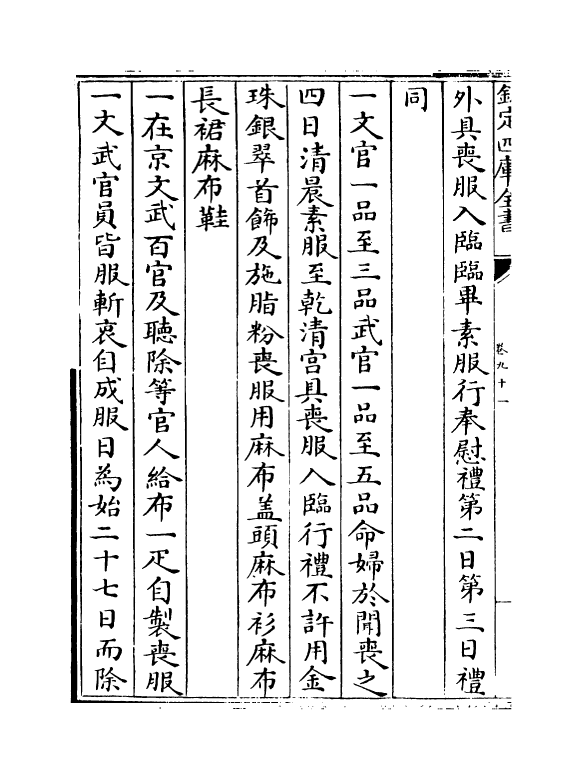 欽定四庫全書
卷九十一
外具喪服入臨臨畢素服行奉慰禮第二日第三日禮
同
一文官一品至三品武官一品至五品命婦於聞喪之
四日清晨素服至乾清宫具喪服入臨行禮不許用金
珠銀翠首飾及施脂粉喪服用麻布盖頭麻布衫麻布
長裙麻布鞋
一在京文武百官及聽除等官人給布一疋自製喪服
一文武官員皆服斬衰自成服日為始二十七日而除